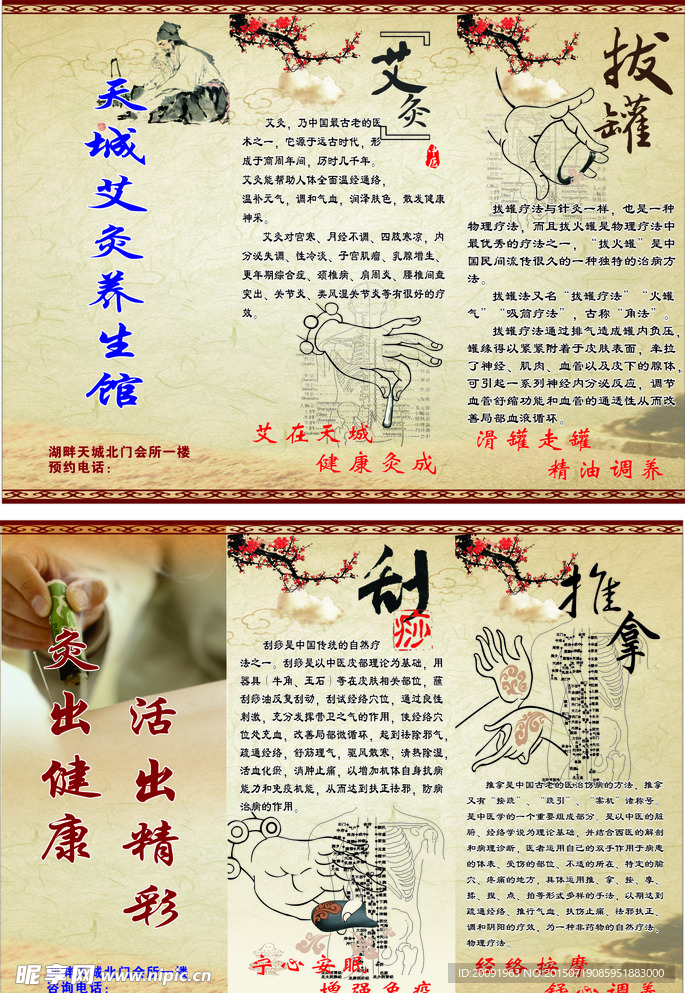 天城艾灸养生馆
湖畔天城北门会所一楼
预约电话：
『艾灸』
艾灸，乃中国最古老的医
术之一，它源于远古时代，形
成于商周年间，历时几千年。
艾灸能帮助人体全面温经通络，
温补元气，调和气血，润泽肤色，散发健康
神采。
艾灸对宫寒、月经不调、四肢寒凉，内
分泌失调、性冷淡、子宫肌瘤、乳腺增生、
更年期综合症、颈椎病、肩周炎、腰椎间盘
突出、关节炎、类风湿关节炎等有很好的疗
效。
艾在天城
健康灸成
拔罐
拔罐疗法与针灸一样，也是一种
物理疗法，而且拔火罐是物理疗法中
最优秀的疗法之一，“拔火罐”是中
国民间流传很久的一种独特的治病方
法。
拔罐法又名“拔罐疗法”“火罐
气”“吸筒疗法”，古称“角法”。
拔罐疗法通过排气造成罐内负压，
罐缘得以紧紧附着于皮肤表面，牵拉
了神经、肌肉、血管以及皮下的腺体，
可引起一系列神经内分泌反应，调节
血管舒缩功能和血管的通透性从而改
善局部血液循环。
滑罐走罐
精油调养
灸出健康
活出精彩
天城北门会所一楼
咨询电话：
刮痧
刮痧是中国传统的自然疗
法之一。刮痧是以中医皮部理论为基础，用
器具（牛角、玉石）等在皮肤相关部位，蘸
刮痧油反复刮动，刮试经络穴位，通过良性
刺激，充分发挥带卫之气的作用，使经络穴
位处充血，改善局部微循环，起到祛除邪气，
疏通经络，舒筋理气，驱风散寒，清热除湿，
活血化瘀，消肿止痛，以增加机体自身抗病
能力和免疫机能，从而达到扶正祛邪，防病
治病的作用。
宁心安眠
增强免疫
推拿
推拿是中国古老的医治伤病的方法，推拿
又有“按跷”、“跷引”、“案杌”诸称号。
是中医学的一个重要组成部分。是以中医的脏
腑、经络学说为理论基础，并结合西医的解剖
和病理诊断，医者运用自己的双手作用于病患
的体表、受伤的部位、不适的所在、特定的腧
穴、疼痛的地方，具体运用推、拿、按、摩、
揉、捏、点、拍等形式多样的手法，以期达到
疏通经络、推行气血、扶伤止痛、祛邪扶正、
调和阴阳的疗效，为一种非药物的自然疗法、
物理疗法。
经络按摩
舒心调养
昵享网 www.nipic.cn
ID:20091963 NO:20150719085951883000